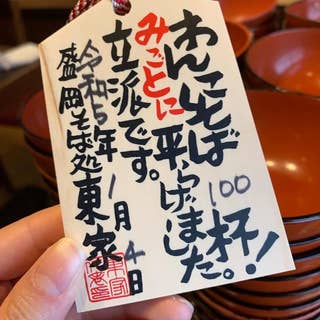 わんこそば
100杯
平らげました。!
みごとに
立派です。
令和5年1月4日
盛岡そば処東家